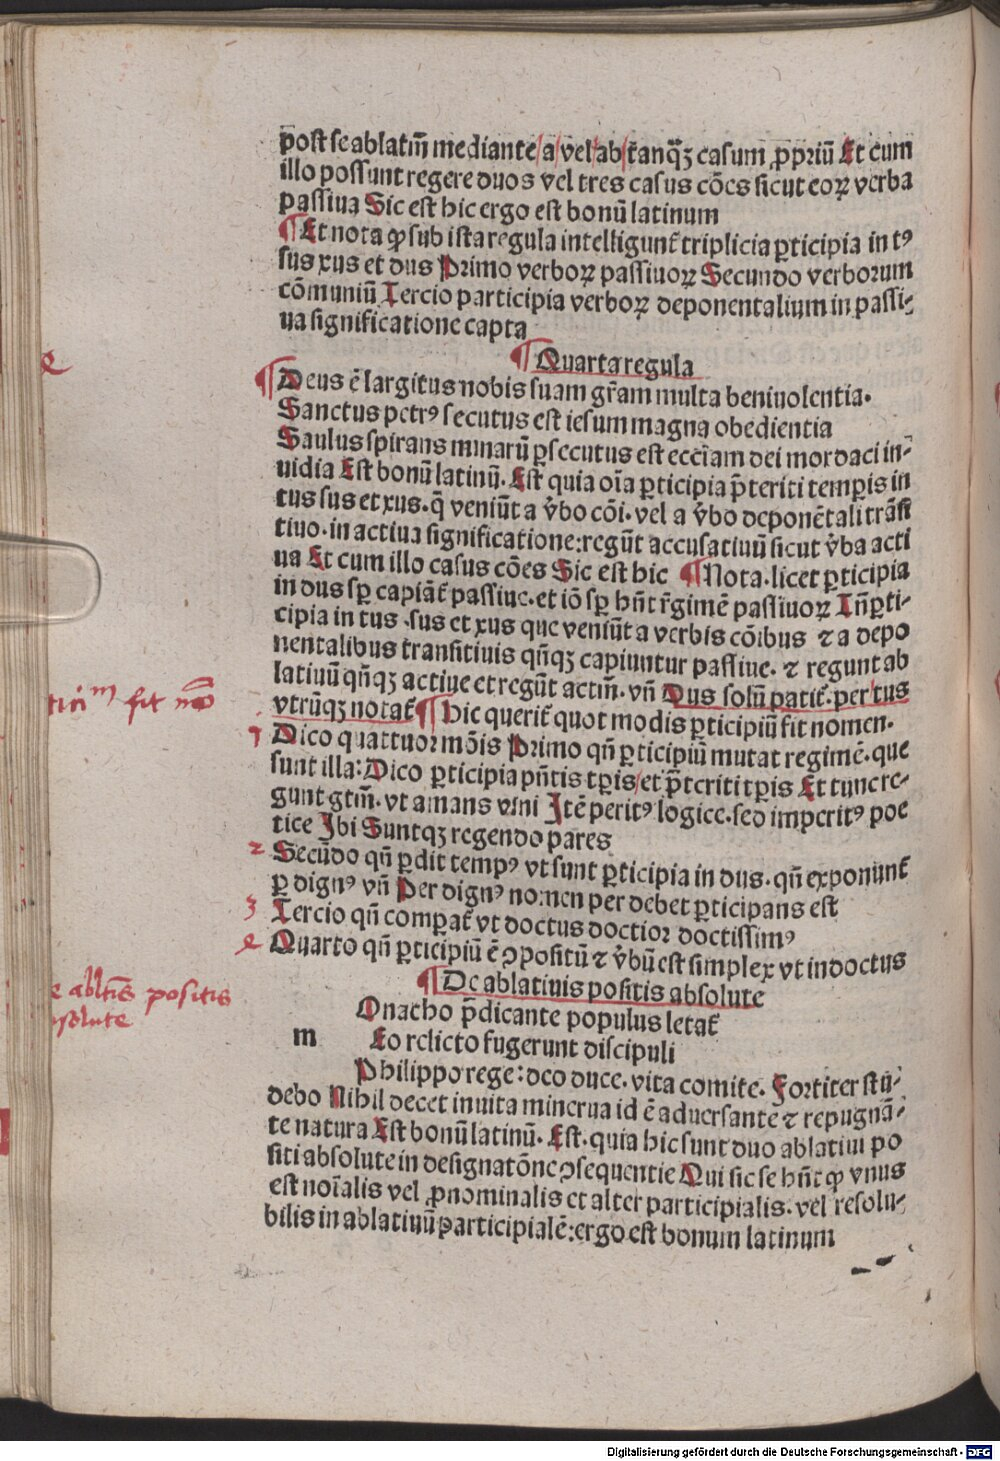 post se ablatiu̅ mediante/a/vel/ab/tanq̅ꝫ casum ꝓpriū Et cum
illo possunt regere duos vel tres casus cōes sicut eoꝝ verba
passiua Sic est hic ergo est bonū latinum
¶Et nota ꝙ sub ista regula intelligunt̄ triplicia ꝑticipia in tꝰ
sus xus et dus Primo verboꝝ passiuoꝝ Secundo verborum
cōmuniū Tercio participia verboꝝ deponentalium in passi-
ua significatione capta
¶Quarta regula
¶Deus ē largitus nobis suam gr̄am multa beniuolentia.
Sanctus petrꝰ secutus est iesum magna obedientia
Saulus spirans minarū ꝑsecutus est eccīam dei mordaci in-
uidia Est bonū latinū. Est quia oīa ꝑticipia p̄teriti temꝑis in
tus sus et xus. q̄ veniūt a v̄bo cōi. vel a v̄bo deponētali trāsi
tiuo. in actiua significatione: regūt accusatiuū sicut v̄ba acti
ua Et cum illo casus cōes Sic est hic ¶Nota. licet ꝑticipia
in dus sp̄ capiāt̄ passiue. et iō sp̄ hn̄t r̄gimē passiuoꝝ Tn̄ ꝑti-
cipia in tus .sus et xus que veniūt a verbis cōibus ⁊ a depo
nentalibus transitiuis qn̄qꝫ capiuntur passiue. ⁊ regunt ab
latiuū qn̄qꝫ actiue et regūt actm̄. vn̄ Dus solū patit̄. per tus
vtrūqꝫ notat̄ ¶Hic querit̄ quot modis ꝑticipiū fit nomen.
1 Dico quattuor mōis Primo qn̄ ꝑticipiū mutat regimē. que
sunt illa: Dico ꝑticipia pn̄tis tꝑis/et p̄teriti tꝑis Et tunc re-
gunt gtm̄. vt amans vini Itē peritꝰ logice. sed imperitꝰ poe
tice Ibi Suntqꝫ regendo pares
2 Secūdo qn̄ ꝑdit tempꝰ vt sunt ꝑticipia in dus. qn̄ exponunt̄
ꝑ dignꝰ vn̄ Per dignꝰ nomen per debet ꝑticipans est
3 Tercio qn̄ compat̄ vt doctus doctior doctissimꝰ
4 Quarto qn̄ ꝑticipiū ē ꝯpositū ⁊ v̄bū est simplex vt indoctus
¶De ablatiuis positis absolute
Monacho p̄dicante populus letat̄
m Eo relicto fugerunt discipuli
Philippo rege: deo duce. vita comite. Fortiter stu-
debo Nihil decet inuita minerua id ē aduersante ⁊ repugnā-
te natura Est bonū latinū. Est. quia hic sunt duo ablatiui po
siti absolute in designatōne ꝯsequentie Qui sic se hn̄t ꝙ vnus
est noīalis vel ꝓnominalis et alter participialis. vel resolu-
bilis in ablatiuū participialē: ergo est bonum latinum
fit
ablt̄is positis
Digitalisierung gefördert durch die Deutsche Forschungsgemeinschaft - DFG